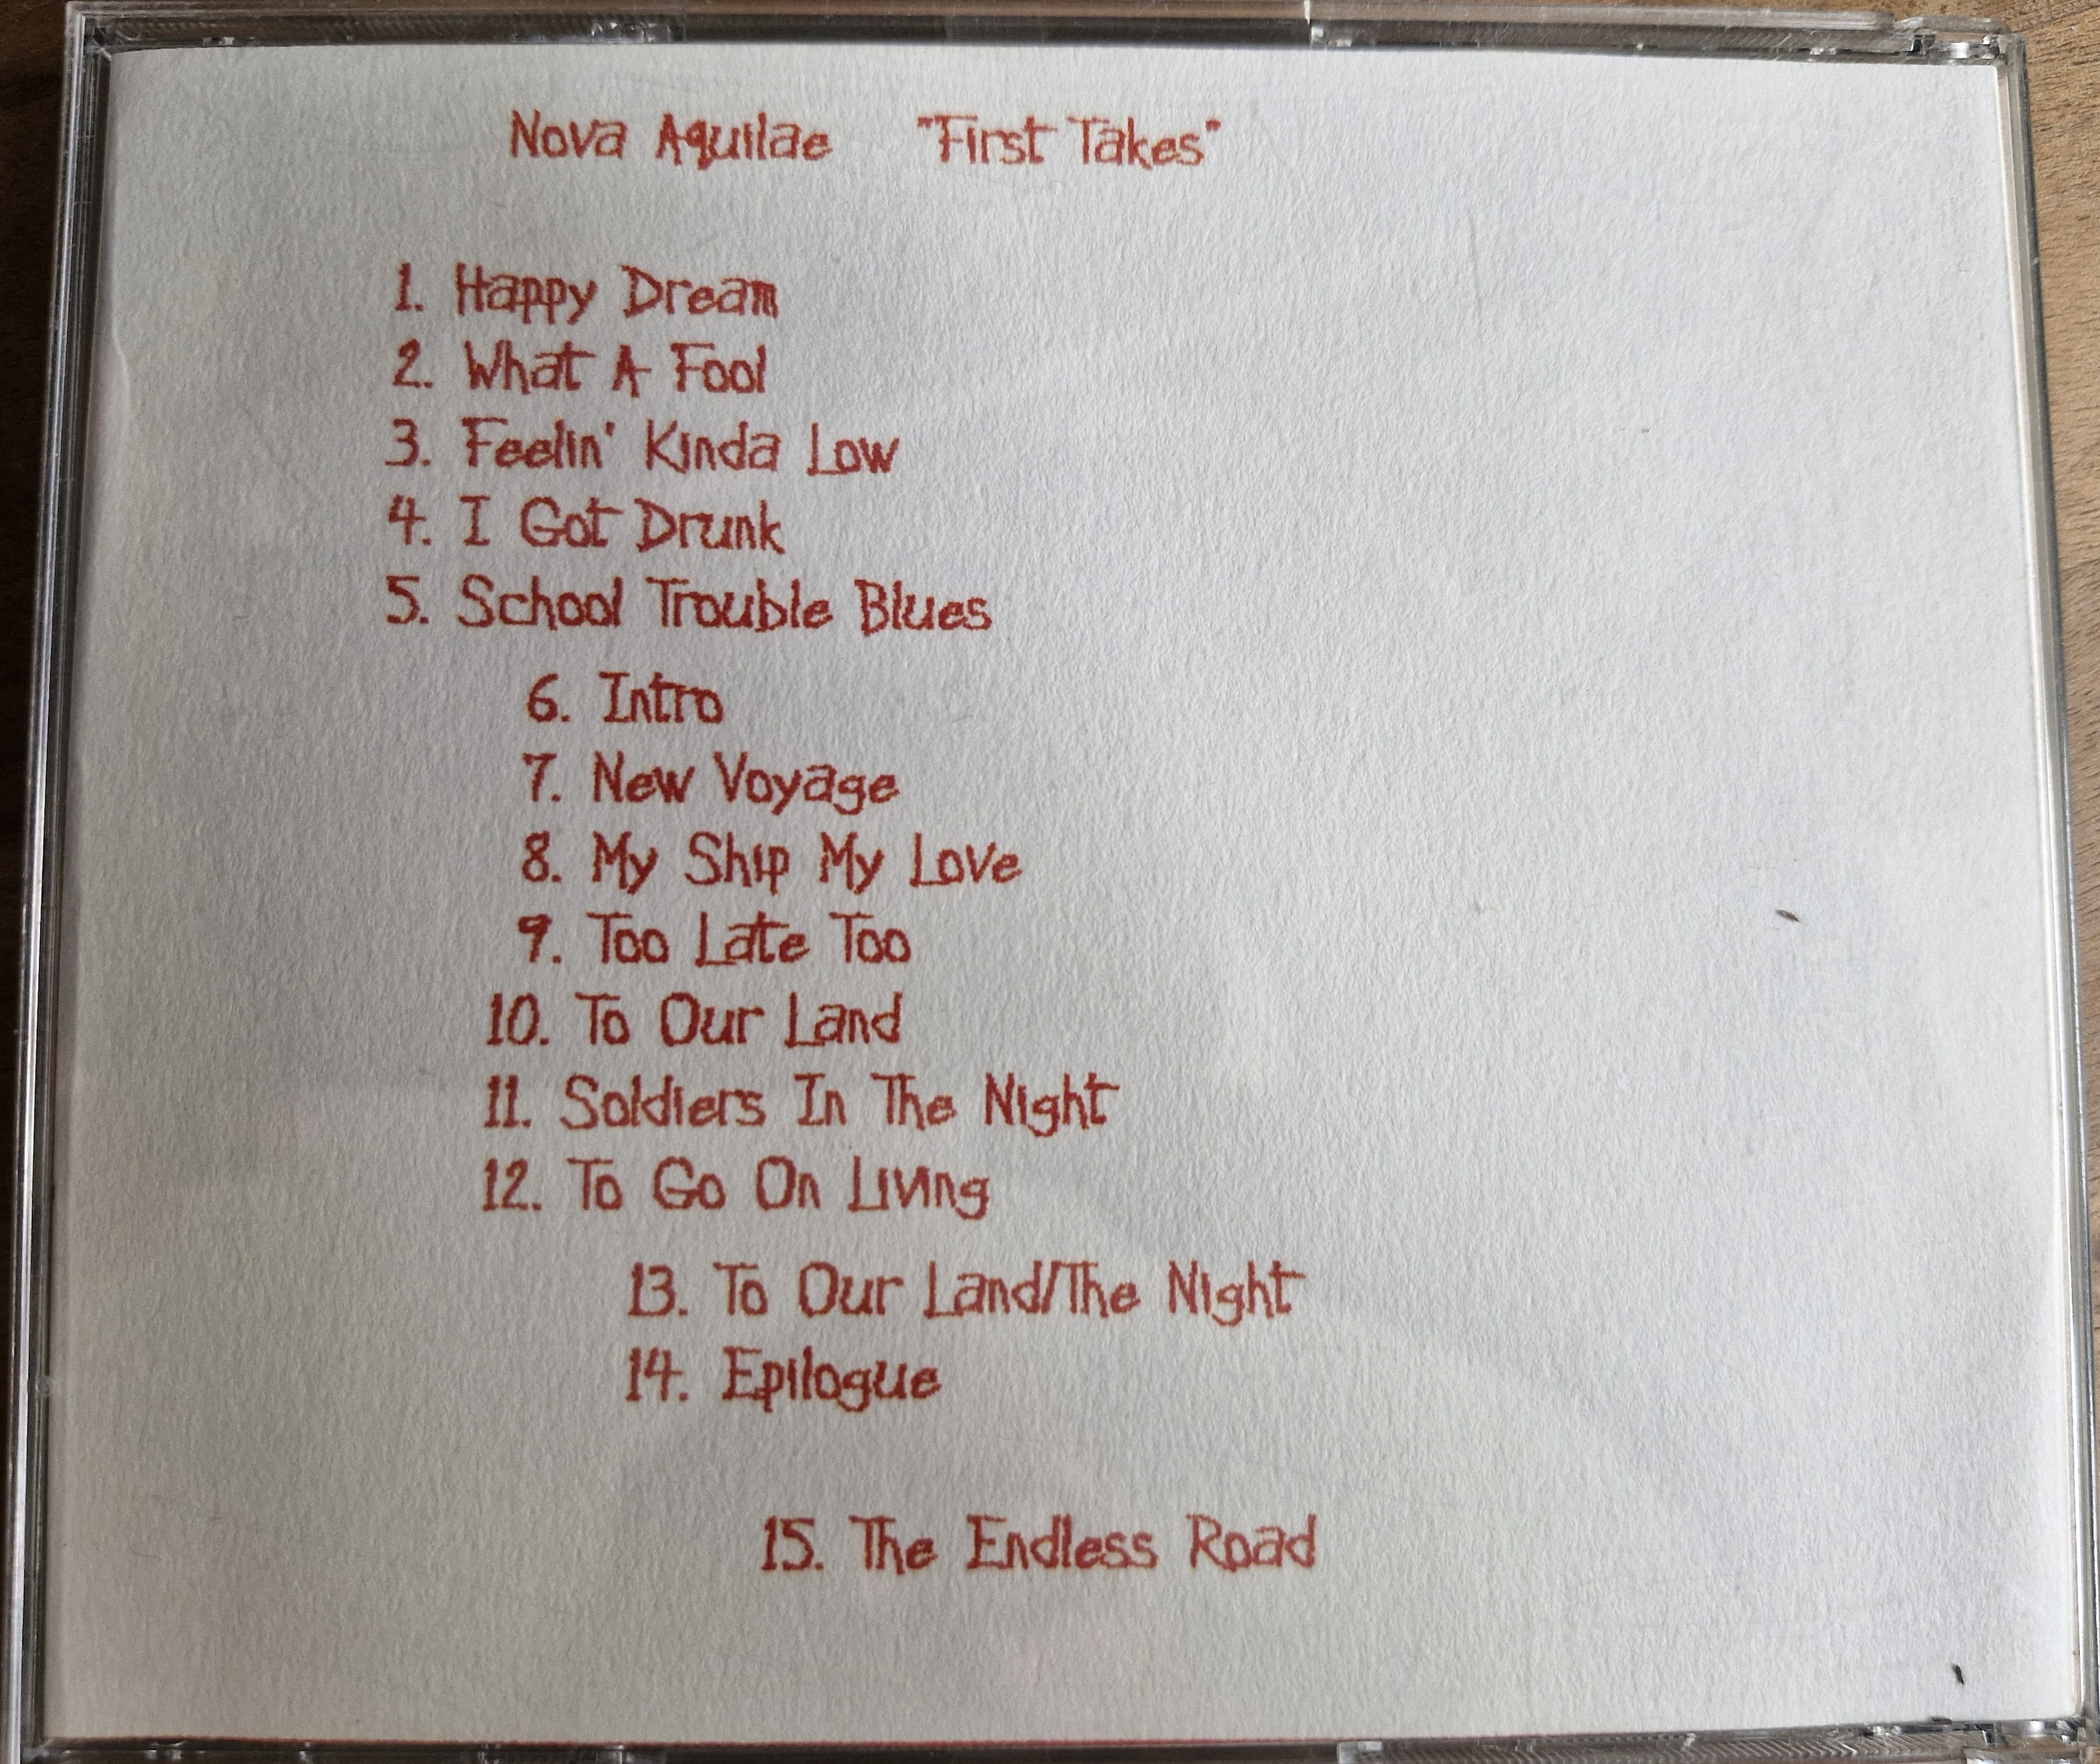 Nova Aquilae "First Takes"
1. Happy Dream
2. What A Fool
3. Feelin' Kinda Low
4. I Got Drunk
5. School Trouble Blues
6. Intro
7. New Voyage
8. My Ship My Love
9. Too Late Too
10. To Our Land
11. Soldiers In The Night
12. To Go On Living
13. To Our Land/The Night
14. Epilogue
15. The Endless Road